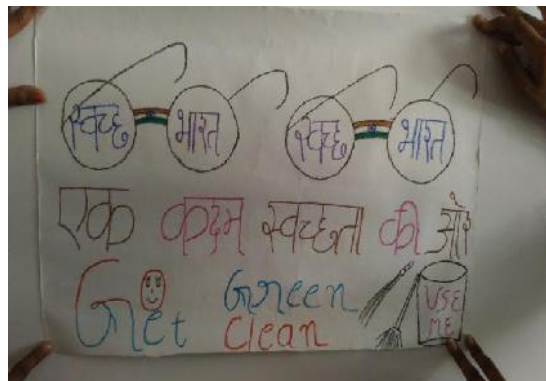 स्वच्छ भारत स्वच्छ भारत
एक कदम स्वच्छता की और
Get Green USE
Clean ME